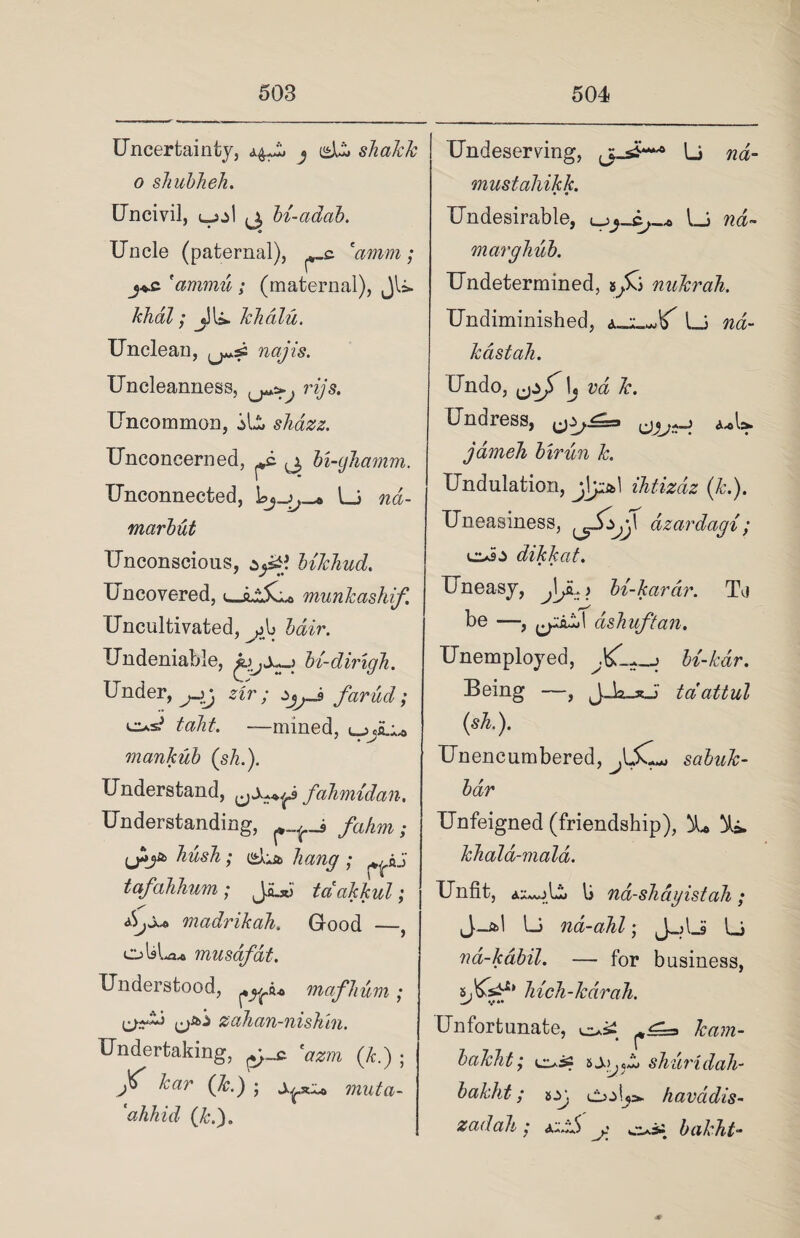 503
504
Uncertainty, شك و شبهه shakk
o shubheh.
Uncivil, بی ادب bí-adab.
Uncle (paternal), عم 'amm;
عمو 'ammú; (maternal), خال
khál; خالو khálú.
Unclean, نجس najis.
Uncleanness, رجس rijs.
Uncommon, شاذ sházz.
Unconcerned, بی غم bí-ghamm.
Unconnected, نا مربوط ná-
marbút
Unconscious, بیخود bíkhud.
Uncovered, منكشف munkashif.
Uncultivated, بایر báir.
Undeniable, بیدریغ bí-dirígh.
Under, زیر zír; فرود farúd;
تحت taht. —mined, منقوب
mankúb (sh.).
Understand, فهمیدن fahmídan.
Understanding, فهم fahm;
هوش húsh; هنك hang; تفهم
tafahhum; تعقل ta'akkul;
مدركه madrikah. Good —,
مصافات musáfát.
Understood, مفهوم mafhúm;
ذهن نشین zahan-nishín.
Undertaking, عزم 'azm (k.);
كار kar (k.); متعهد muta-
'ahhid (k.).
Undeserving, نا مستحق ná-
mustahikk.
Undesirable, نا مرغوب ná-
marghúb.
Undetermined, نكره nukrah.
Undiminished, نا كاسته ná-
kástah.
Undo, وا كردن vá k.
Undress, جامه بیرون كردن
jámeh bírún k.
Undulation, اهتزاز ihtizáz (k.).
Uneasiness, آزردگی ázardagí;
دقت dikkat.
Uneasy, بیقرار bí-karár. To
be —, آشفتن áshuftan.
Unemployed, بیكار bí-kár.
Being —, تعطل ta'attul
(sh.).
Unencumbered, سبكبار sabuk-
bár
Unfeigned (friendship), خلا ملا
khalá-malá.
Unfit, نا شایسته ná-sháyistah;
نا اهل ná-ahl; نا قابل
ná-kábil. — for business,
هیچكاره hích-kárah.
Unfortunate, كم بخت kam-
bakht; شوریده بخت shúrídah-
bakht; حوادث زده havádis-
zadah; بخت بر گشته bakht-